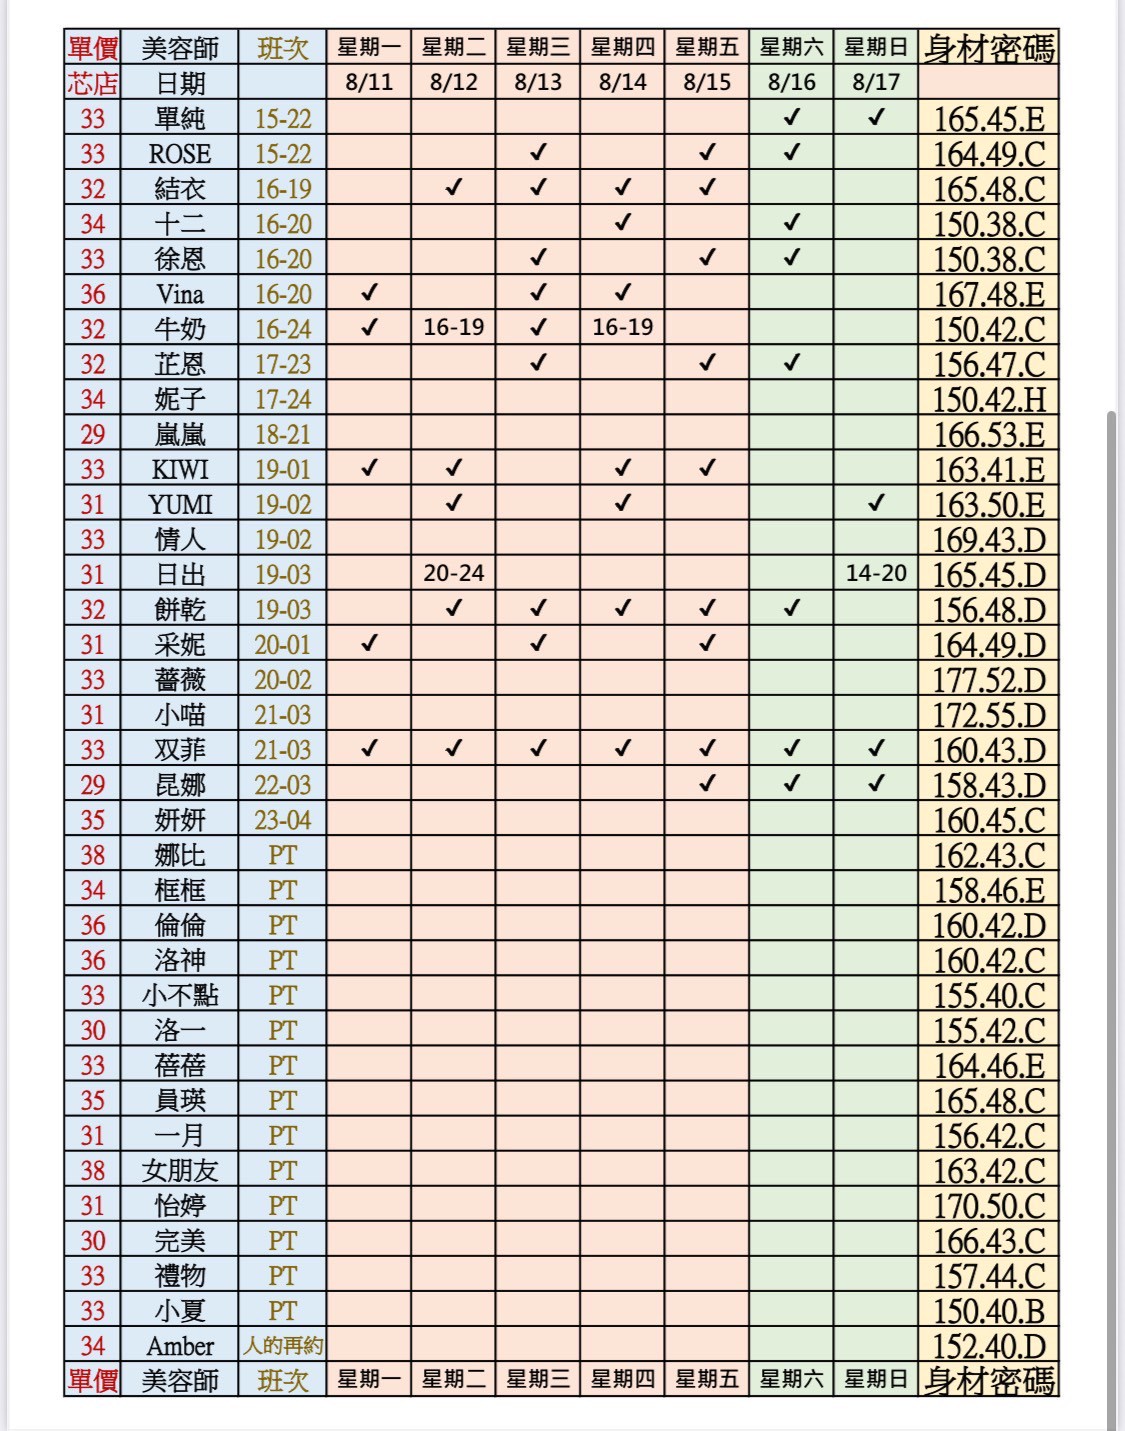 單價 美容師 班次 星期一 星期二 星期三 星期四 星期五 星期六 星期日 身材密碼
芯店 日期 8/11 8/12 8/13 8/14 8/15 8/16 8/17
33 單純 15-22 ✓ ✓ 165.45.E
33 ROSE 15-22 ✓ ✓ ✓ 164.49.C
32 結衣 16-19 ✓ ✓ ✓ ✓ 165.48.C
34 十二 16-20 ✓ ✓ 150.38.C
33 徐恩 16-20 ✓ ✓ ✓ 150.38.C
36 Vina 16-20 ✓ ✓ ✓ 167.48.E
32 牛奶 16-24 ✓ 16-19 ✓ 16-19 150.42.C
32 芷恩 17-23 ✓ ✓ ✓ 156.47.C
34 妮子 17-24 150.42.H
29 嵐嵐 18-21 166.53.E
33 KIWI 19-01 ✓ ✓ ✓ ✓ 163.41.E
31 YUMI 19-02 ✓ ✓ ✓ 163.50.E
33 情人 19-02 169.43.D
31 日出 19-03 20-24 14-20 165.45.D
32 餅乾 19-03 ✓ ✓ ✓ ✓ ✓ 156.48.D
31 采妮 20-01 ✓ ✓ ✓ 164.49.D
33 薔薇 20-02 177.52.D
31 小喵 21-03 172.55.D
33 双菲 21-03 ✓ ✓ ✓ ✓ ✓ ✓ ✓ 160.43.D
29 昆娜 22-03 ✓ ✓ ✓ 158.43.D
35 妍妍 23-04 160.45.C
38 娜比 PT 162.43.C
34 框框 PT 158.46.E
36 倫倫 PT 160.42.D
36 洛神 PT 160.42.C
33 小不點 PT 155.40.C
30 洛一 PT 155.42.C
33 蓓蓓 PT 164.46.E
35 員瑛 PT 165.48.C
31 一月 PT 156.42.C
38 女朋友 PT 163.42.C
31 怡婷 PT 170.50.C
30 完美 PT 166.43.C
33 禮物 PT 157.44.C
33 小夏 PT 150.40.B
34 Amber 人的再約 152.40.D
單價 美容師 班次 星期一 星期二 星期三 星期四 星期五 星期六 星期日 身材密碼